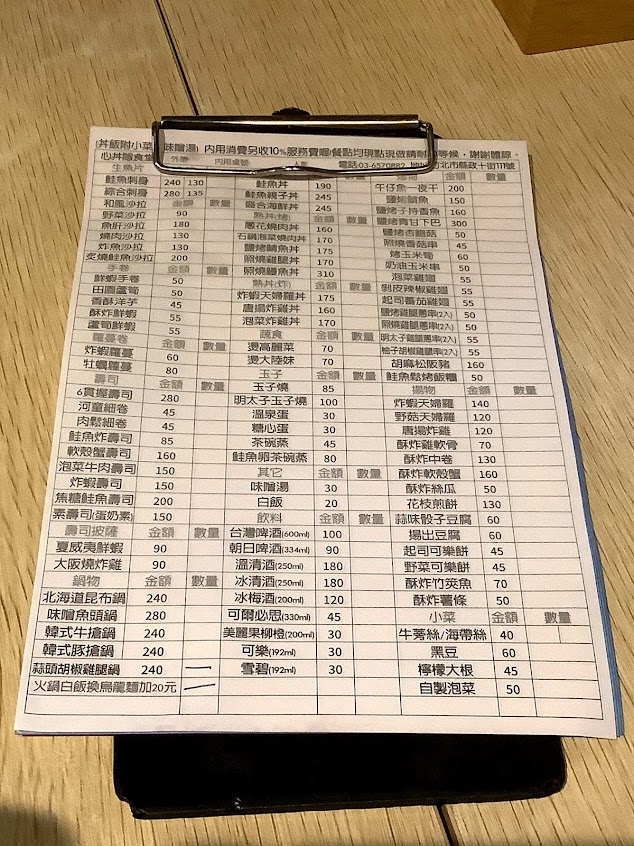 丼飯附小菜 味噌湯 內用消費另收10%服務費喔(餐點均現點現做請耐 等候,謝謝體諒。
心丼隱食堂 外帶 內用桌號 人數 電話:03-6570882 竹北市縣政十街111號
生魚片
鮭魚刺身 240 130
綜合刺身 280 135
和風沙拉 金額 數量
野菜沙拉 90
魚肝沙拉 180
燒肉沙拉 130
炸魚沙拉 130
炙燒鮭魚沙拉 200
手卷 金額 數量
鮮蝦手卷 50
田園蘆筍 50
香酥洋芋 45
酥炸鮮蝦 55
蘆筍鮮蝦 55
蘿蔓卷 金額 數量
炸蝦蘿蔓 60
牡蠣蘿蔓 80
壽司 金額 數量
6貫握壽司 280
河童細卷 45
肉鬆細卷 45
鮭魚炸壽司 85
軟殼蟹壽司 160
泡菜牛肉壽司 150
炸蝦壽司 150
焦糖鮭魚壽司 200
素壽司(蛋奶素) 150
壽司披薩 金額 數量
夏威夷鮮蝦 90
大阪燒炸雞 90
鍋物 金額 數量
北海道昆布鍋 240
味噌魚頭鍋 280
韓式牛搶鍋 240
韓式豚搶鍋 240
蒜頭胡椒雞腿鍋 240 一
火鍋白飯換烏龍麵加20元 一
鮭魚丼 190
鮭魚親子丼 245
綜合海鮮丼 245
熱丼(烤) 金額 數量
蔥花燒肉丼 160
石鍋泡菜燒肉丼 170
鹽烤鯖魚丼 175
照燒雞腿丼 170
照燒鰻魚丼 310
熱丼(炸) 金額 數量
炸蝦天婦羅丼 175
唐揚炸雞丼 160
泡菜炸雞丼 170
蔬食 金額 數量
燙高麗菜 70
燙大陸妹 70
玉子 金額 數量
玉子燒 85
明太子玉子燒 100
溫泉蛋 30
糖心蛋 30
茶碗蒸 45
鮭魚卵茶碗蒸 80
其它 金額 數量
味噌湯 30
白飯 20
飲料 金額 數量
台灣啤酒(600ml) 100
朝日啤酒(334ml) 90
溫清酒(250ml) 180
冰清酒(250ml) 180
冰梅酒(200ml) 120
可爾必思(330ml) 45
美麗果柳橙(200ml) 30
可樂(192ml) 30
雪碧(192ml) 30
數量
午仔魚一夜干 200
鹽烤鯖魚 150
鹽烤子持香魚 160
鹽烤青甘下巴 300
鹽烤杏鮑菇 50
照燒香菇串 45
烤玉米筍 60
奶油玉米串 50
泡菜雞翅 55
剝皮辣椒雞翅 55
起司蕃茄雞翅 55
鹽烤雞腿蔥串(2入) 50
照燒雞腿蔥串(2入) 50
明太子雞腿蔥串(2入) 55
柚子胡椒雞腿串(2入) 55
胡麻松阪豬 160
鮭魚鬆烤飯糰 50
揚物 金額 數量
炸蝦天婦羅 140
野菇天婦羅 120
唐揚炸雞 120
酥炸雞軟骨 70
酥炸中卷 130
酥炸軟殼蟹 160
酥炸絲瓜 50
花枝煎餅 130
蒜味骰子豆腐 60
揚出豆腐 60
起司可樂餅 45
野菜可樂餅 45
酥炸竹筴魚 70
酥炸薯條 50
小菜 金額 數量
牛蒡絲/海帶絲 40
黑豆 60
檸檬大根 45
自製泡菜 50